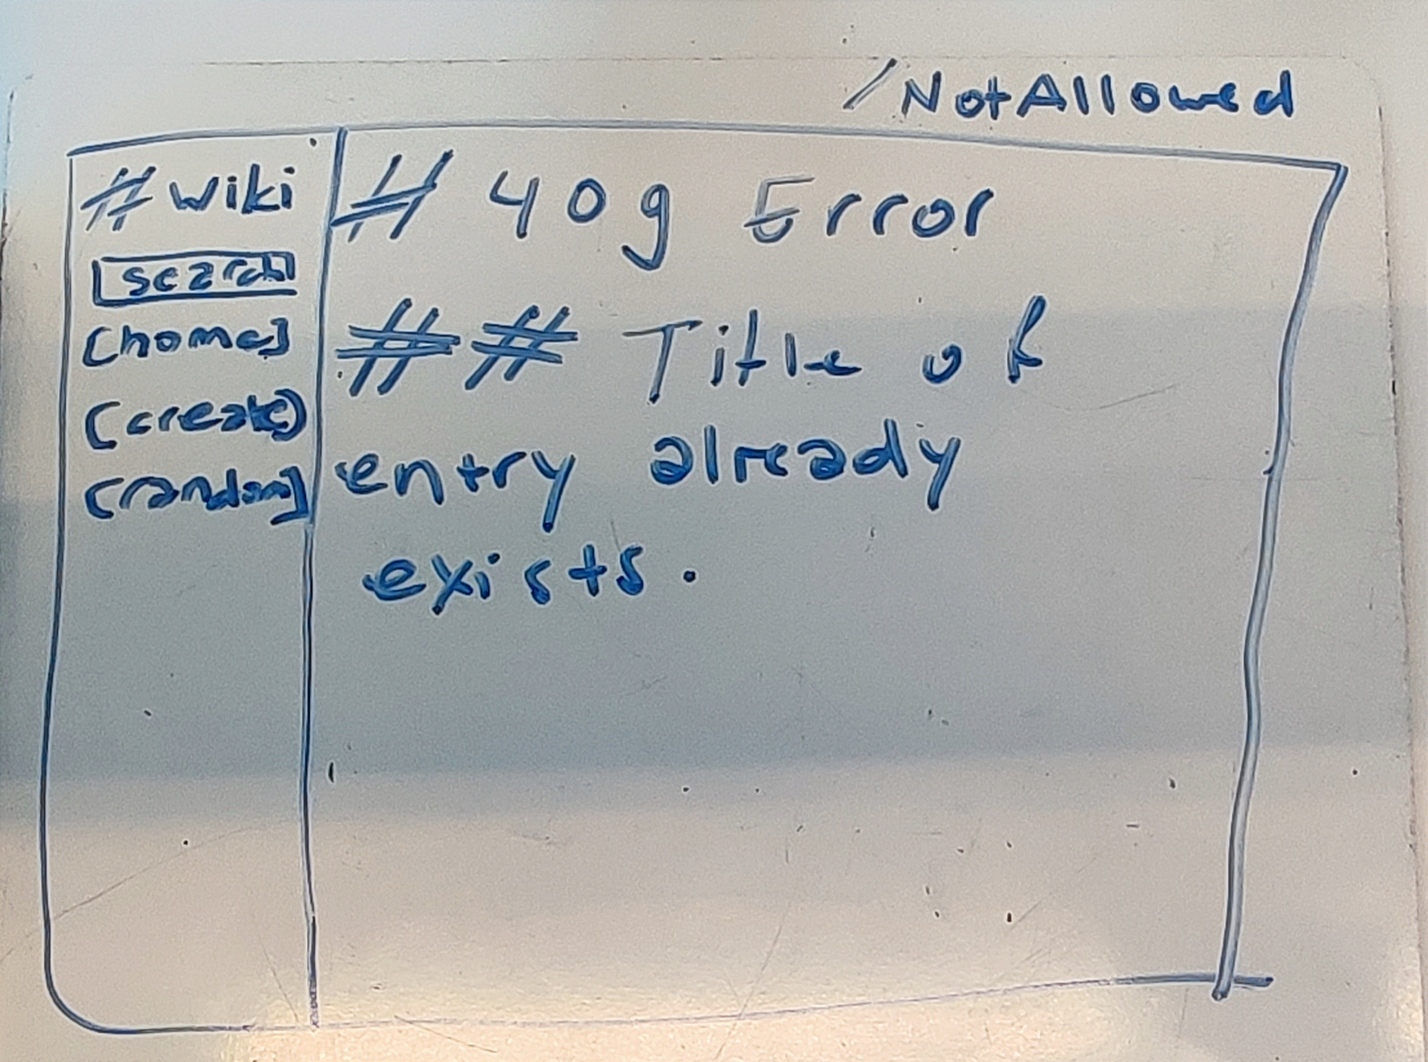 /NotAllowed
# wiki
search
[home]
(create)
[random]
# 409 Error
## Title of
entry already
exists.